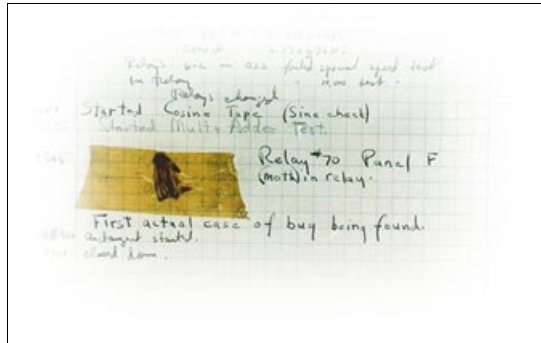 Relays 6-2 in 033 failed special speed test
in Relay
Relays changed
Started Cosine Tape (Sine check)
Started Multi Adder Test.
Relay #70 Panel F
(moth) in relay.
First actual case of bug being found.
antangent started.
closed down.